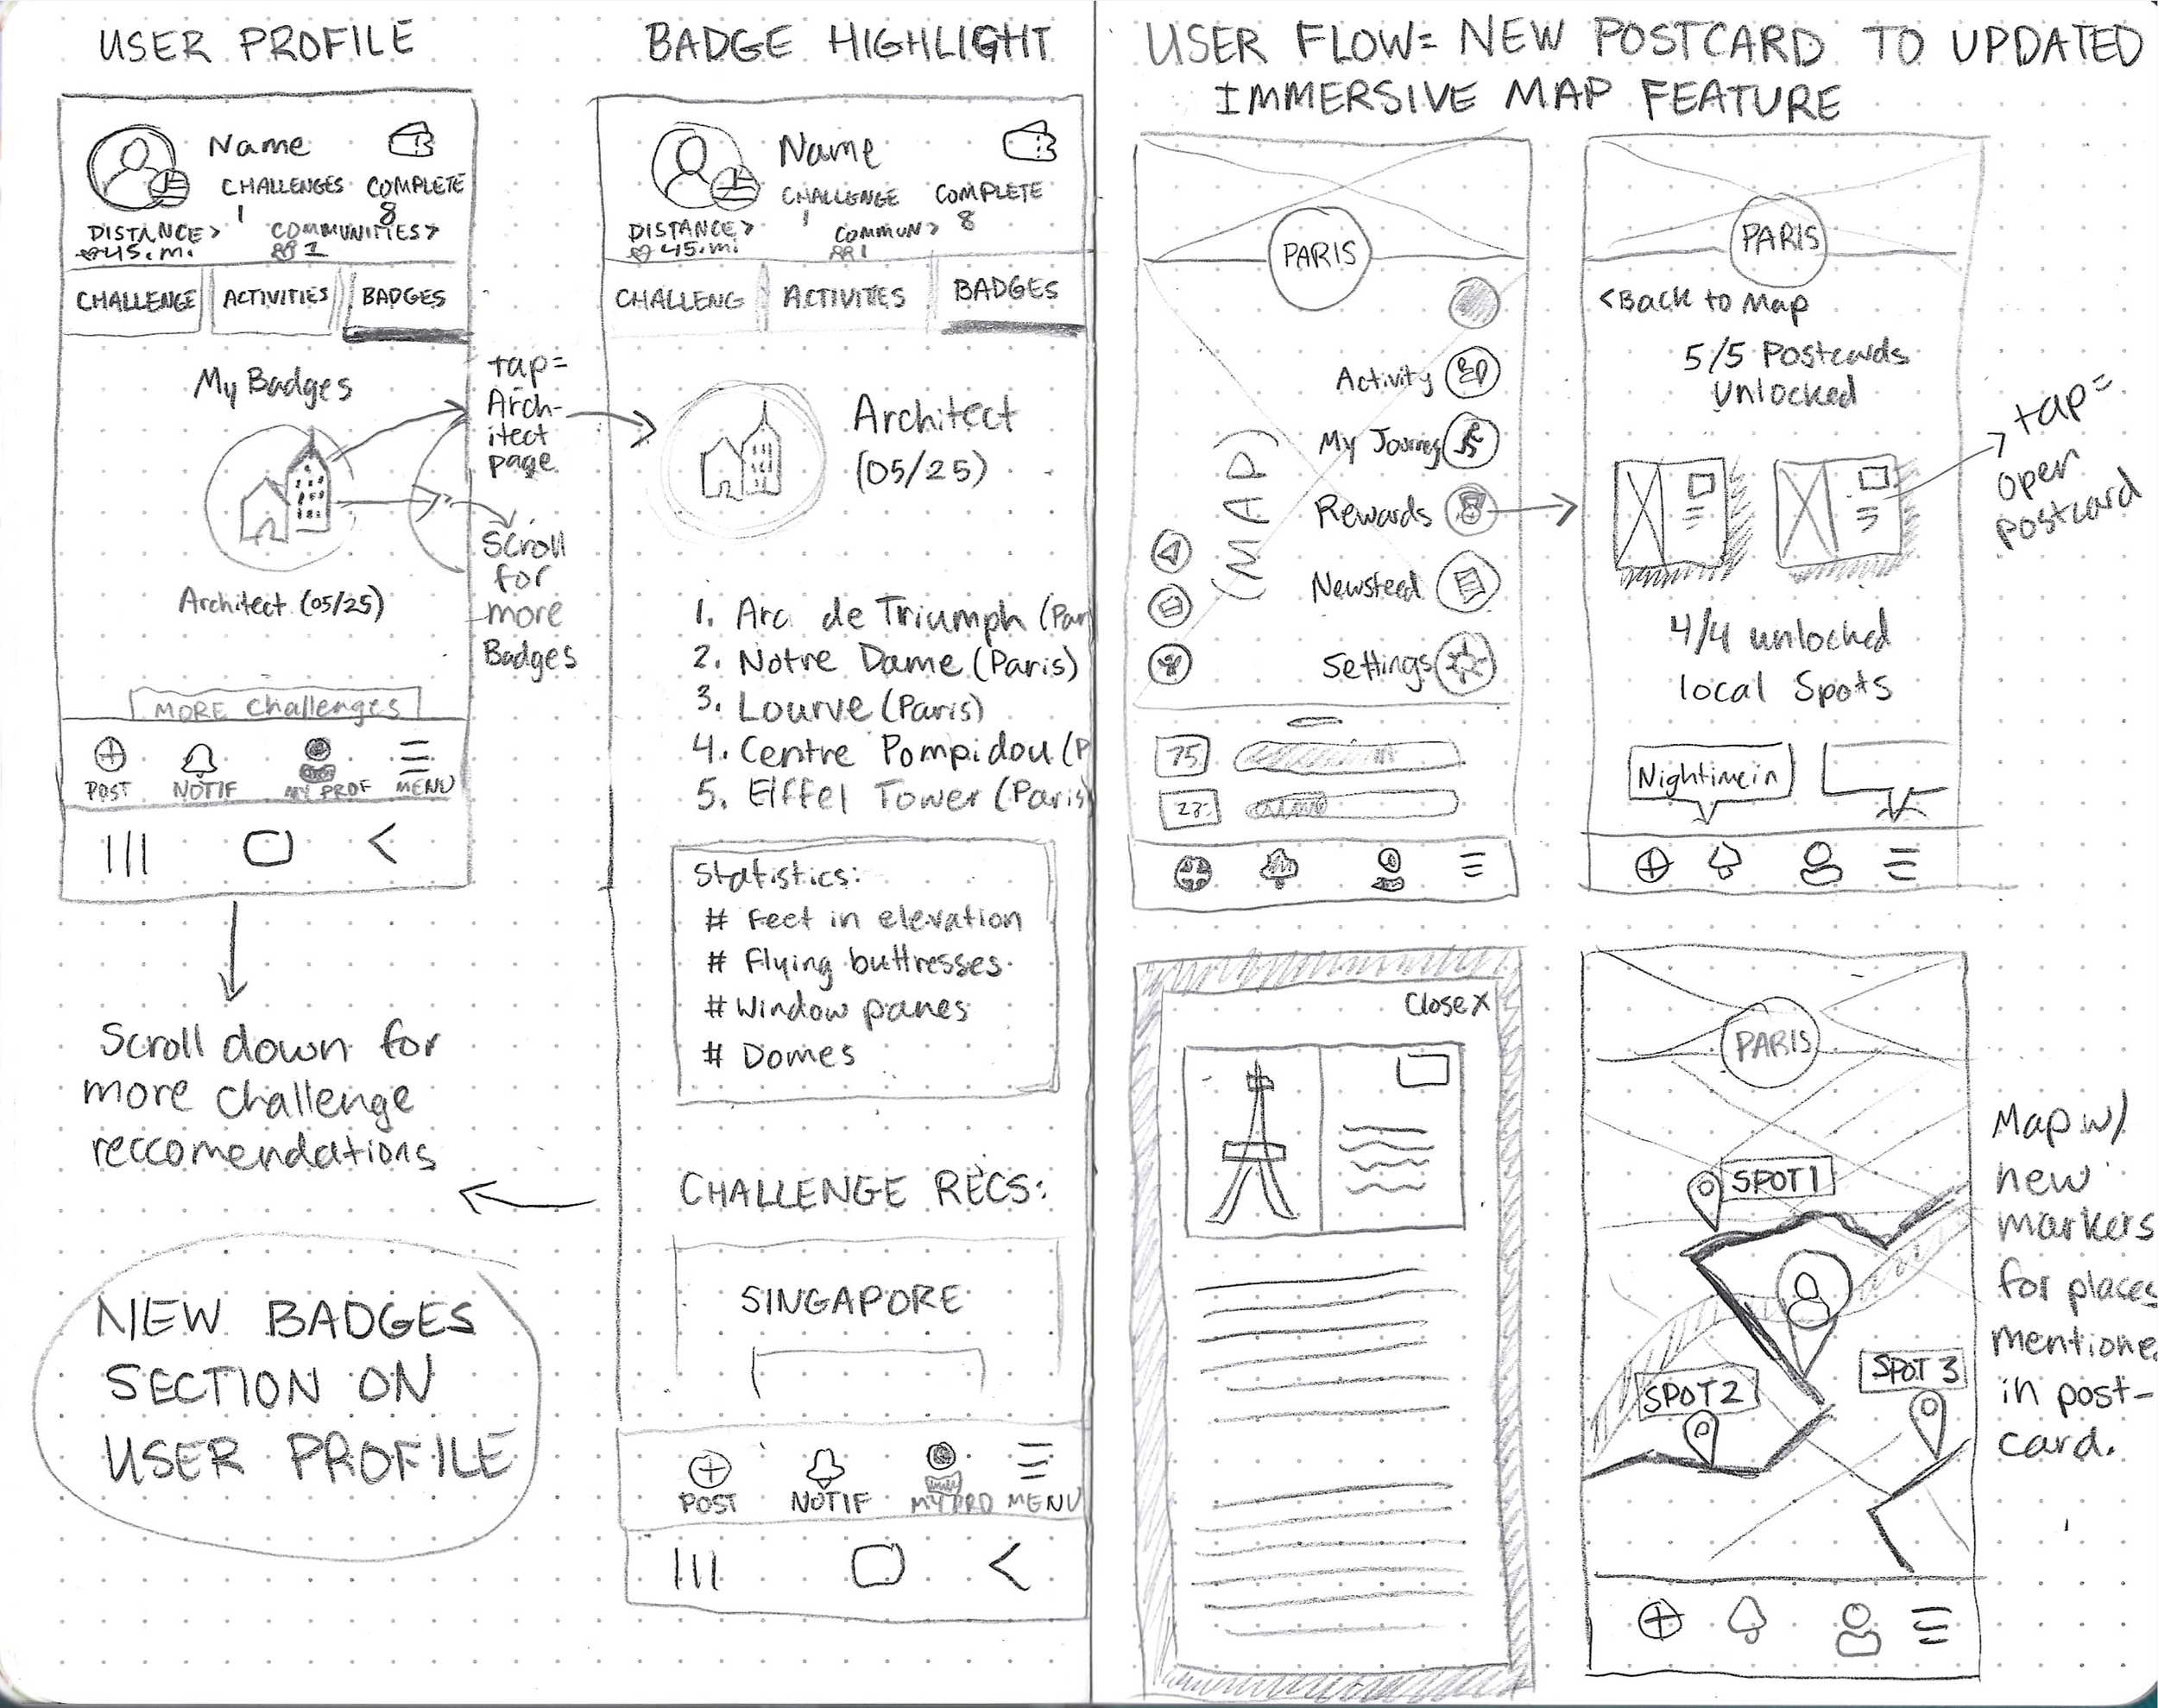 USER PROFILE
Name
CHALLENGES COMPLETE
1 8
DISTANCE > COMMUNITIES >
45.mi 1
CHALLENGE ACTIVITIES BADGES
My Badges
Architect (05/25)
MORE challenges
POST NOTIF MY PROF MENU
tap=
Arch-
itect
page
Scroll
for
more
Badges
Scroll down for
more challenge
reccomendations
NEW BADGES
SECTION ON
USER PROFILE
BADGE HIGHLIGHT
Name
CHALLENGE COMPLETE
1 8
DISTANCE > COMMUN >
45.mi 1
CHALLENG ACTIVITES BADGES
Architect
(05/25)
1. Arc de Triumph (Par
2. Notre Dame (Paris)
3. Lourve (Paris)
4. Centre Pompidou (P
5. Eiffel Tower (Paris
Statistics:
# Feet in elevation
# Flying buttresses
# Window panes
# Domes
CHALLENGE RECS:
SINGAPORE
POST NOTIF MY PRO MENU
USER FLOW= NEW POSTCARD TO UPDATED
IMMERSIVE MAP FEATURE
PARIS
Activity
My Journey
(MAP)
Rewards
Newsfeed
Settings
75
23
PARIS
<Back to Map
5/5 Postcards
Unlocked
tap=
open
postcard
4/4 unlocked
local Spots
Nightimein
Close X
PARIS
SPOT 1
SPOT 2
SPOT 3
Map w/
new
markers
for places
mentione
in post-
card.